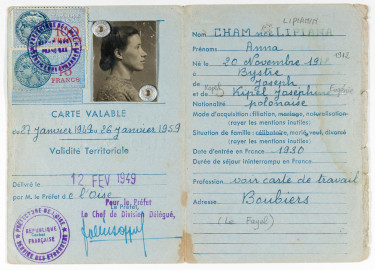 10
FRANCS
CARTE VALABLE
du 27 janvier 1949 au 26 janvier 1959
Validité Territoriale
Délivré le 12 FEV 1949
par M. le Préfet de l'Oise
Pour le Préfet
Le Préfet,
Le Chef de Division Délégué,
PREFECTURE DE L'OISE
REPUBLIQUE
FRANÇAISE
SERVICE DES ETRANGERS
LIPIANIN
Nom CHAM née
Prénoms Anna
Né le 20 Novembre 1912
à Bystre
de Joseph
et de Kipel Josephine Eugénie
Nationalité polonaise
Mode d'acquisition : filiation, mariage, naturalisation
(rayer les mentions inutiles)
Situation de famille : célibataire, marié, veuf, divorcé
(rayer les mentions inutiles)
Date d'entrée en France 1930
Durée de séjour ininterrompu en France
Profession voir carte de travail
Adresse Boubiers
(Le Fayel)